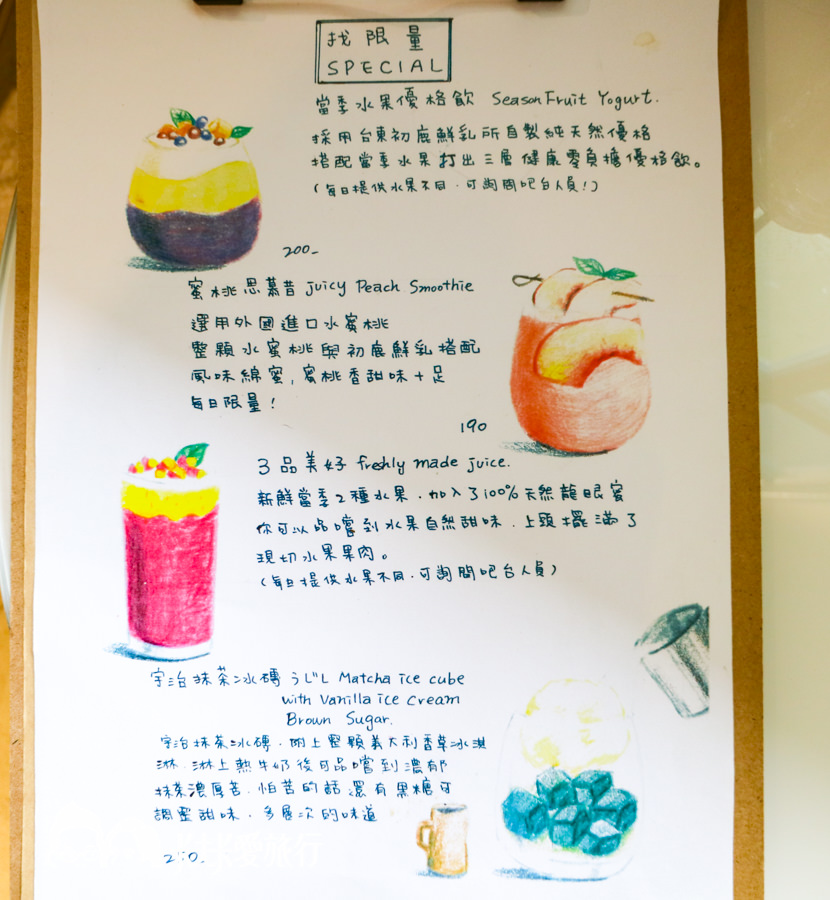 找限量
SPECIAL
當季水果優格飲 Season Fruit Yogurt.
採用台東初鹿鮮乳所自製純天然優格
搭配當季水果打出三層健康零負擔優格飲。
(每日提供水果不同.可詢問吧台人員!)
200-
蜜桃思慕昔 Juicy Peach Smoothie
選用外國進口水蜜桃
整顆水蜜桃與初鹿鮮乳搭配
風味綿蜜,蜜桃香甜味十足
每日限量!
190
3品美好 freshly made juice.
新鮮當季2種水果.加入了100%天然龍眼蜜
你可以品嚐到水果自然甜味.上頭擺滿了
現切水果果肉。
(每日提供水果不同.可詢問吧台人員)
宇治抹茶冰磚 うじし Matcha ice cube
with Vanilla ice cream
Brown Sugar.
宇治抹茶冰磚.附上整顆義大利香草冰淇
淋.淋上熱牛奶後可品嚐到濃郁
抹茶濃厚苦.怕苦的話還有黑糖可
調整甜味.多層次的味道
愛旅行